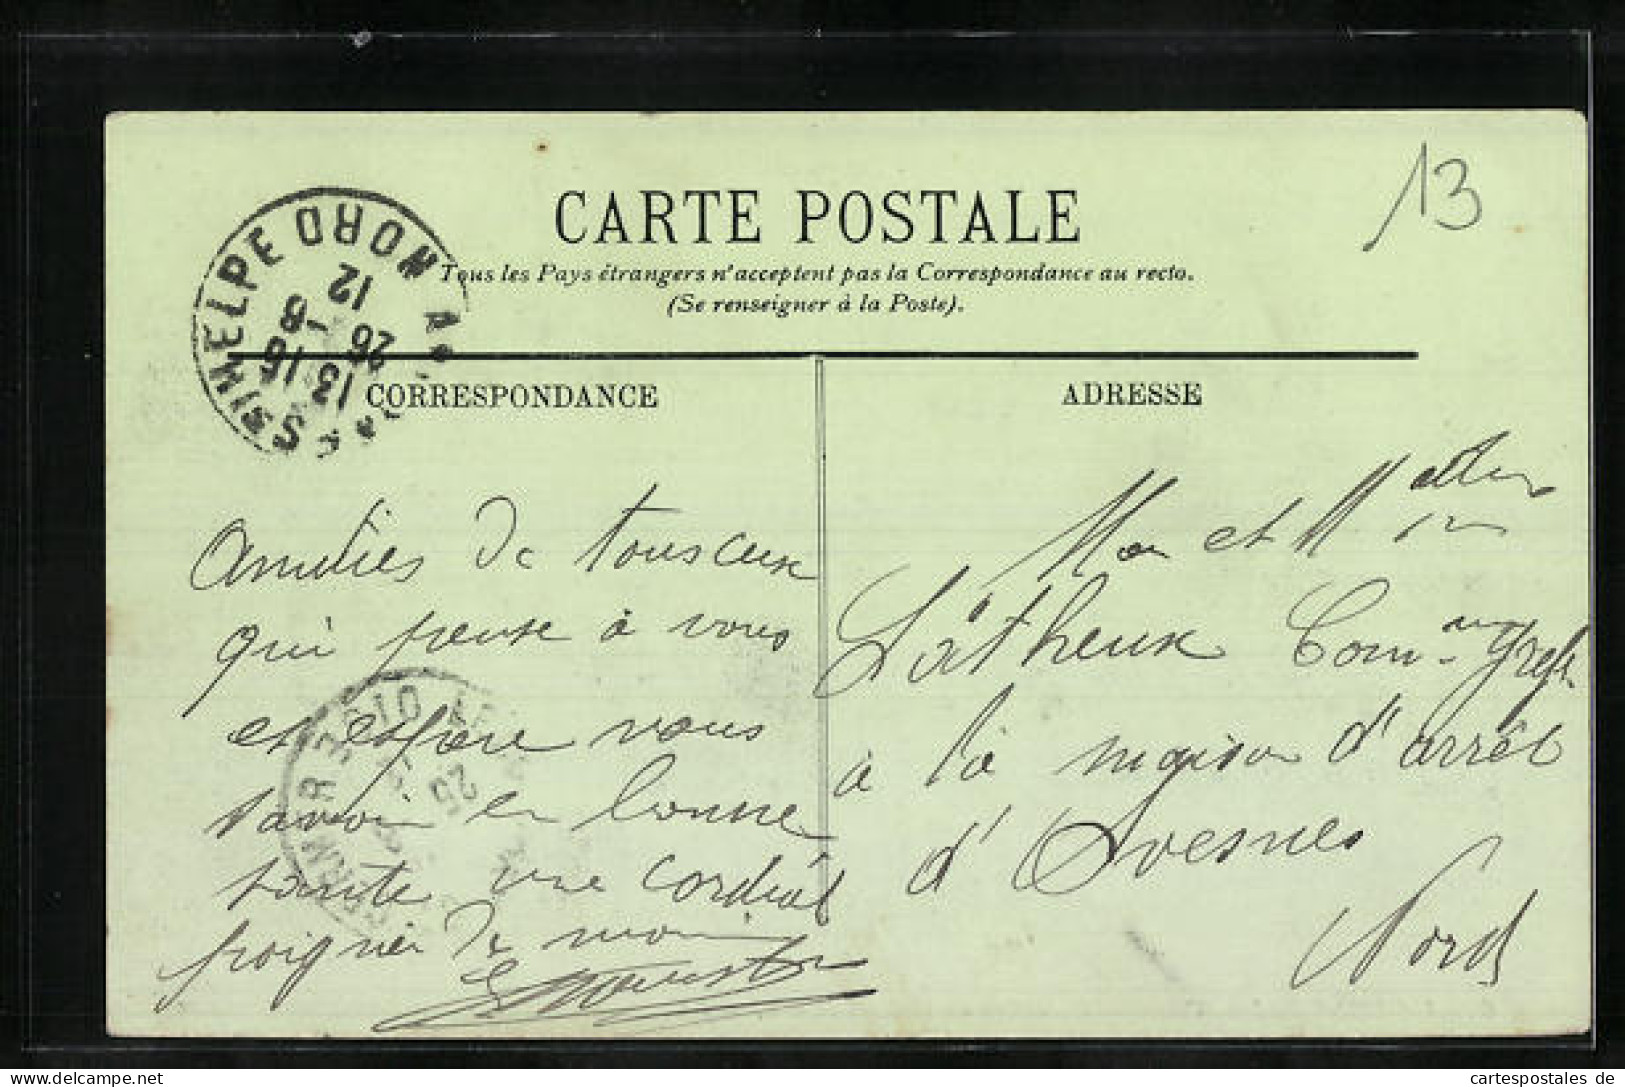 13
CARTE POSTALE
Tous les Pays étrangers n'acceptent pas la Correspondance au recto.
(Se renseigner à la Poste).
SHELPE NORD
13 16
26 -8
12
CORRESPONDANCE
ADRESSE
Amitiés de tous ceux
qui pense à vous
et espère vous
savoir en bonne
santé une cordial
poignée de main
Mon et M
à la maison d'arrêt
d'Avesnes
Nord
25
cartespostales de